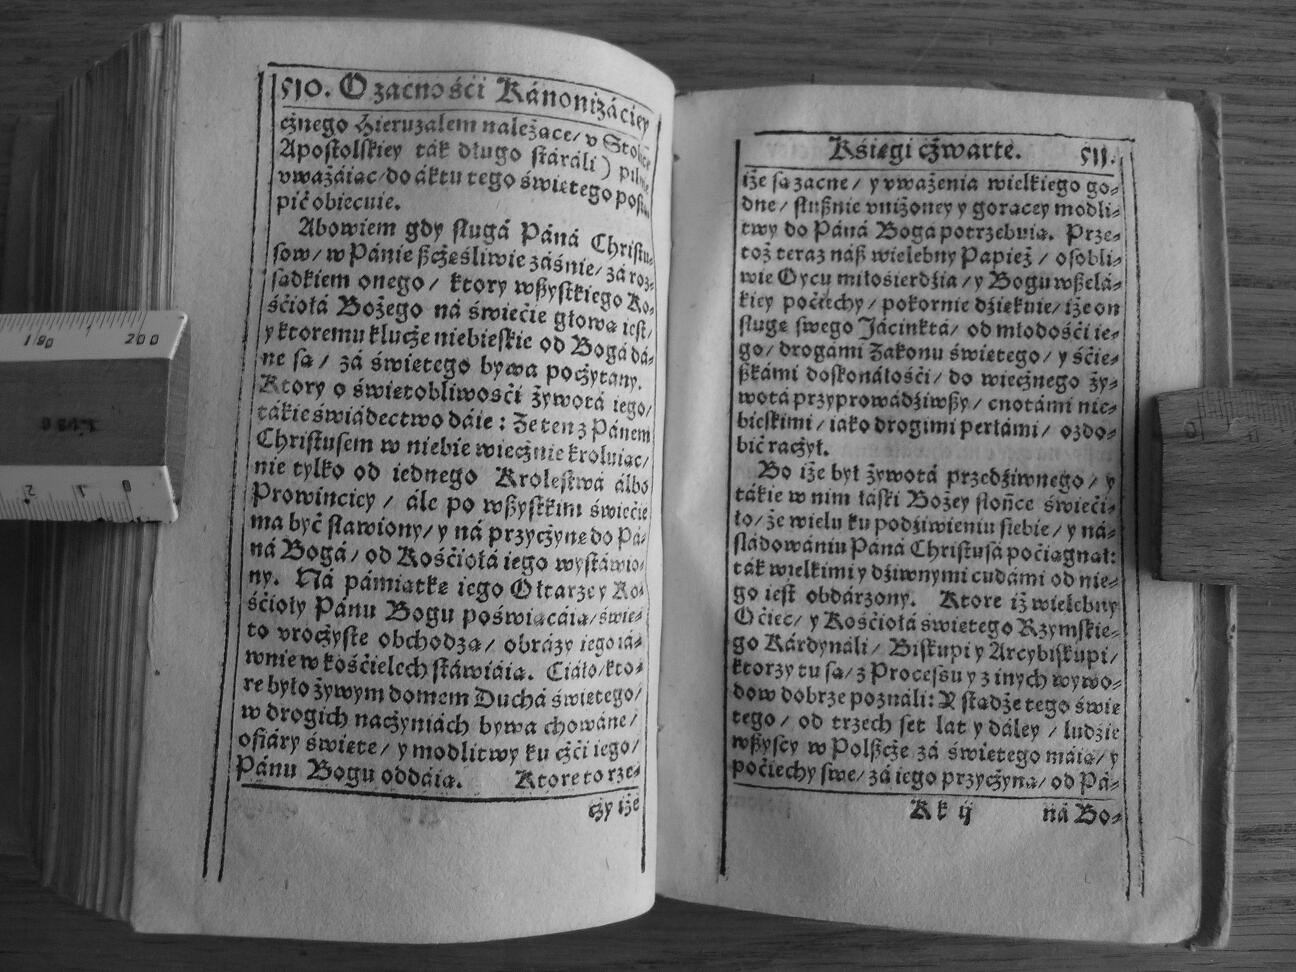 510. O zacnośći Kánonizáciey
cżnego Hieruzalem należące/ v Stolice
Apostolskiey ták długo stáráli) pilnie
vważáiąc/ do áktu tego świętego postą-
pić obiecuie.
Abowiem gdy sługá Páná Christu-
sow/ w Pánie ßcżęśliwie záśnie/ zá roz-
sądkiem onego/ ktory wßystkiego Ko-
śćiołá Bożego ná świećie głową iest/
y ktoremu klucże niebieskie od Bogá dá-
ne są/ zá świętego bywa pocżytany.
Ktory o świętobliwośći żywotá iego/
tákie świádectwo dáie: Że ten z Pánem
Christusem w niebie wiecżnie kroluiąc/
nie tylko od iednego Krolestwá álbo
Prowinciey/ ále po wßystkim świećie
ma być sławiony/ y ná przycżynę do Pá-
ná Bogá/ od Kośćiołá iego wystáwio-
ny. Ná pámiątkę iego Ołtarze y Ko-
śćioły Pánu Bogu poświącáią/ świę-
to vrocżyste obchodzą/ obrázy iego iá-
wnie w kośćielech stáwiáią. Ciáło/ kto-
re było żywym domem Duchá świętego/
w drogich nacżyniách bywa chowáne/
ofiáry święte/ y modlitwy ku cżći iego/
Pánu Bogu oddáią. Ktore to rze-
cży iże
Kśięgi cżwarte. 511.
iże są zacne/ y vważenia wielkiego go-
dne/ słußnie vniżoney y gorącey modli-
twy do Páná Bogá potrzebuią. Prze-
toż teraz náß wielebny Papież/ osobli-
wie Oycu miłośierdźia/ y Bogu wßelá-
kiey poćiechy/ pokornie dźiękuie/ iże on
sługę swego Jácinktá/ od młodośći ie-
go/ drogámi Zakonu świętego/ y śćie-
ßkámi doskonáłośći/ do wiecżnego ży-
wotá przyprowádźiwßy/ cnotámi nie-
bieskimi/ iáko drogimi perłámi/ ozdo-
bić racżył.
Bo iże był żywotá przedźiwnego/ y
tákie w nim łáski Bożey słońce świeći-
ło/ że wielu ku podźiwieniu siebie/ y ná-
śládowániu Páná Christusá poćiągnął:
ták wielkimi y dźiwnymi cudámi od nie-
go iest obdárzony. Ktore iż wielebny
Oćiec/ y Kośćiołá świętego Rzymskie-
go Kárdynáli/ Biskupi y Arcybiskupi/
ktorzy tu są/ z Processu y z inych wywo-
dow dobrze poználi: Y stądże tego świę
tego/ od trzech set lat y dáley/ ludzie
wßyscy w Polßcże zá świętego máią/ y
poćiechy swe/ zá iego przycżyną/ od Pá-
Kk ij ná Bo-